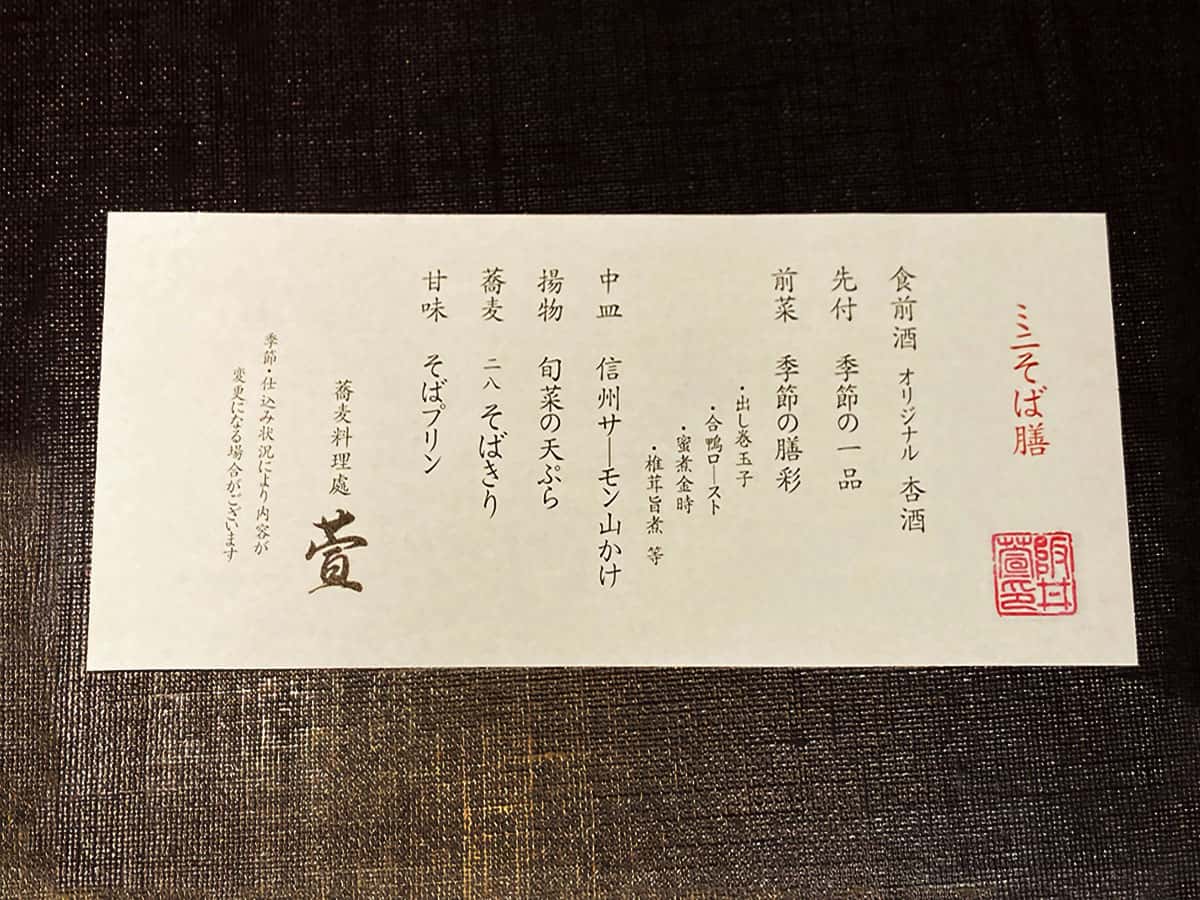 ミニそば膳
阪井
萱印
食前酒 オリジナル 杏酒
先付 季節の一品
前菜 季節の膳彩
・出し巻玉子
・合鴨ロースト
・蜜煮金時
・椎茸旨煮 等
中皿 信州サーモン山かけ
揚物 旬菜の天ぷら
蕎麦 二八そばきり
甘味 そばプリン
蕎麦料理處 萱
季節・仕込み状況により内容が
変更になる場合がございます